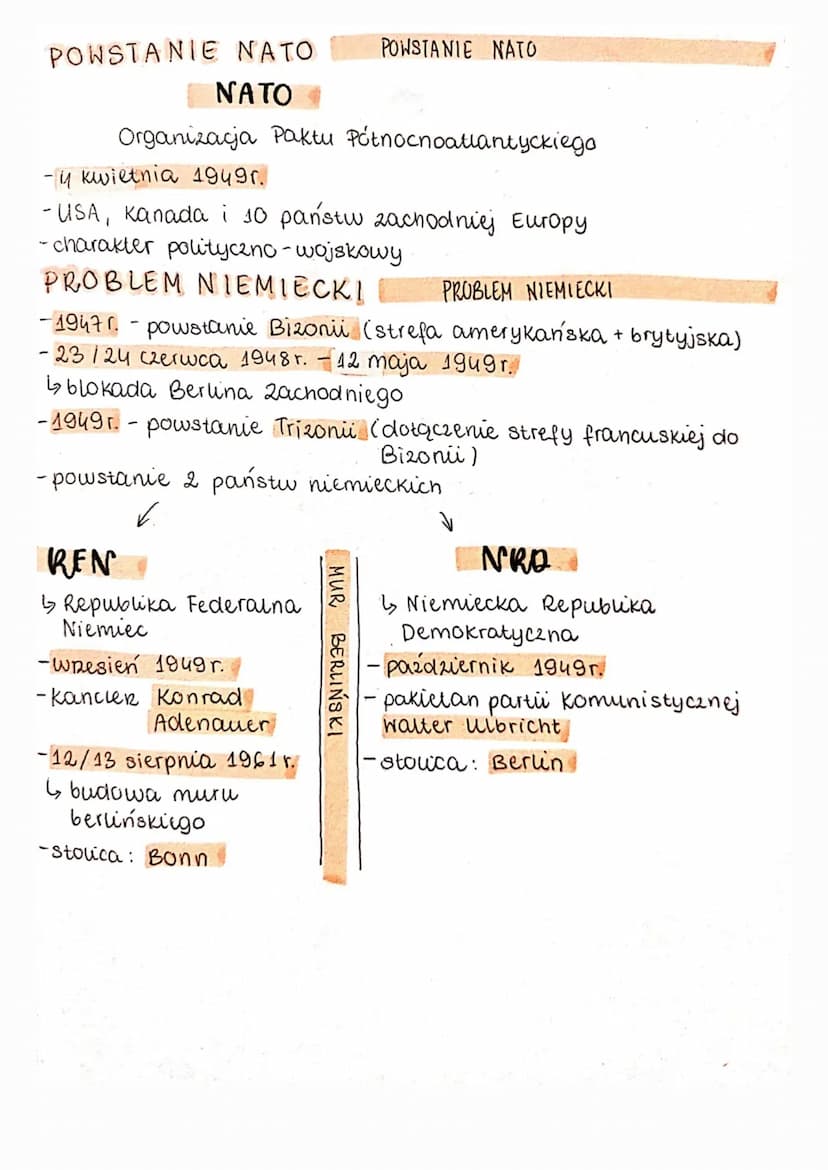 POWSTANIE NATO POWSTANIE NATO
NATO
Organizacja Paktu Północnoatlantyckiego
- 4 kwietnia 1949r.
- USA, Kanada i 10 państw zachodniej Europy
- charakter polityczno-wojskowy
PROBLEM NIEMIECKI PROBLEM NIEMIECKI
- 1947r. - powstanie Bizonii (strefa amerykańska + brytyjska)
- 23/24 czerwca 1948r. - 12 maja 1949r.
↳ blokada Berlina Zachodniego
- 1949r. - powstanie Trizonii (dołączenie strefy francuskiej do
Bizonii)
- powstanie 2 państw niemieckich
↙ ↘
RFN
↳ Republika Federalna
Niemiec
- wrzesień 1949r.
- kanclerz Konrad
Adenauer
- 12/13 sierpnia 1961r.
↳ budowa muru
berlińskiego
- stolica: Bonn
MUR BERLIŃSKI
NRD
↳ Niemiecka Republika
Demokratyczna
- październik 1949r.
- partii komunistycznej
Walter Ulbricht
- stolica: Berlin